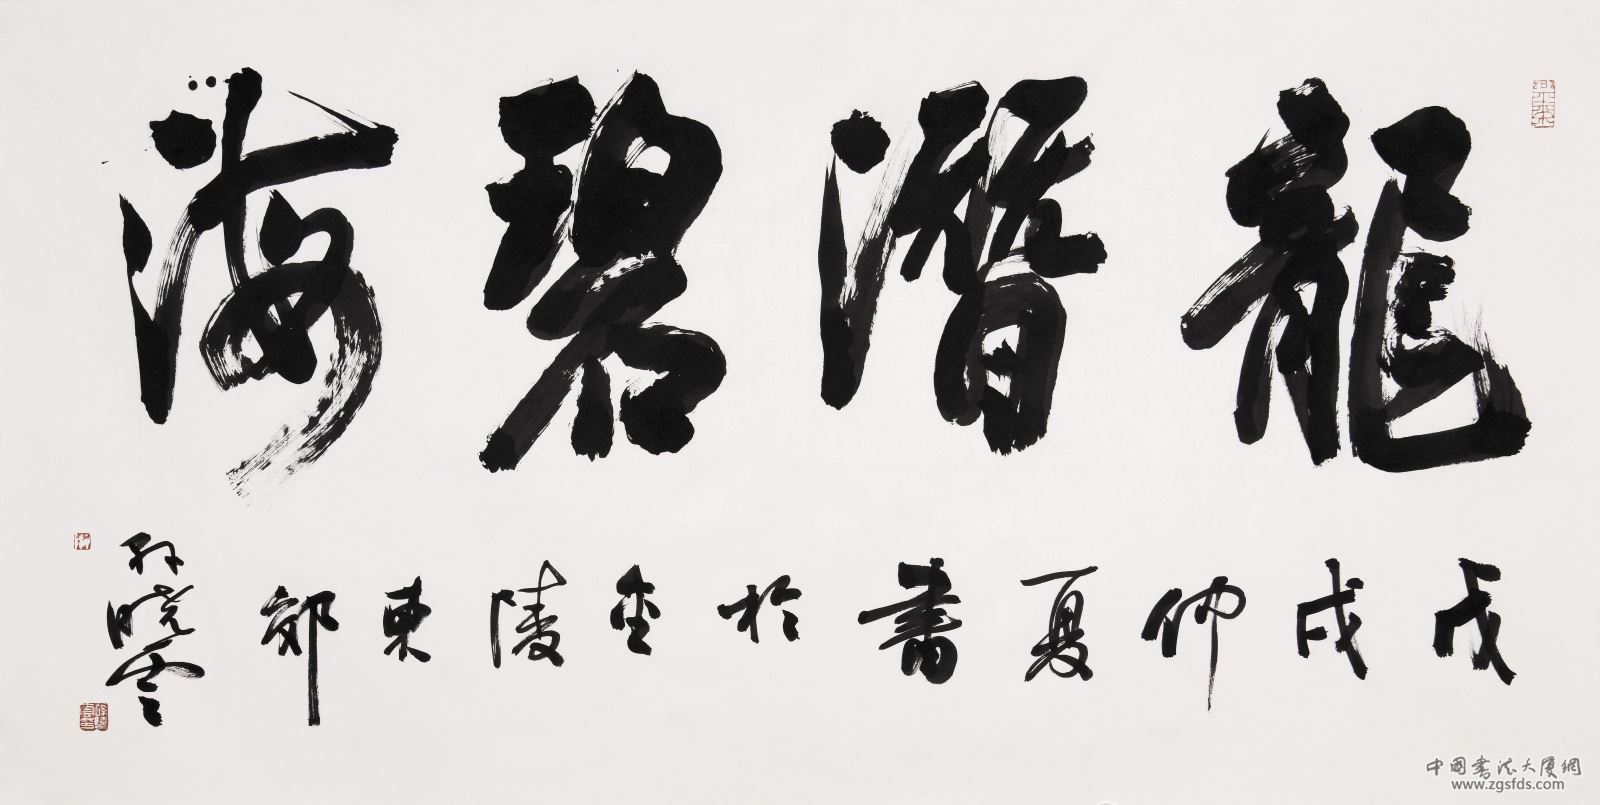 龍潛碧海
戊戌仲夏書於金陵東郊
孫曉雲
中国书法大厦網
www.zgsfds.com